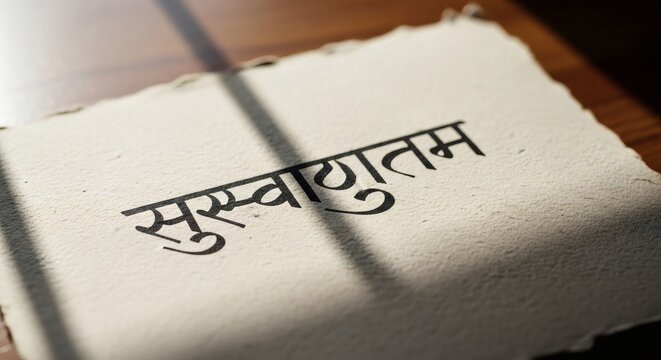 सुस्वागुतम